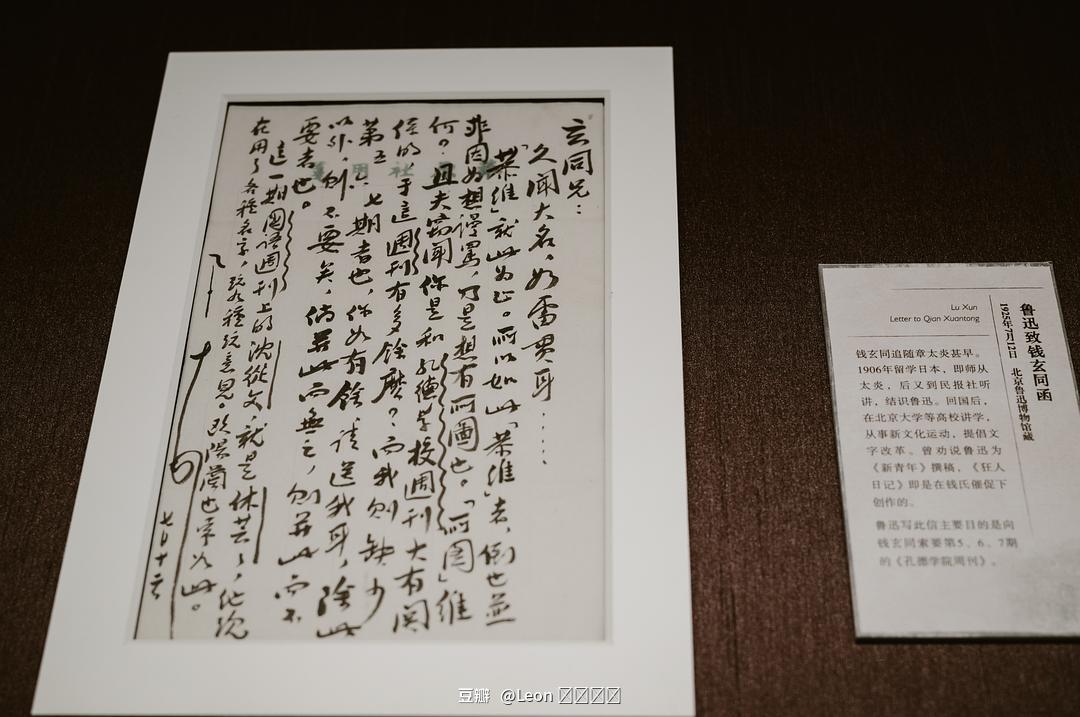 玄同兄:
久聞大名,如雷貫耳……
「恭維」就此為止。所以如此「恭維」者,倒也並
非因為想謾罵,乃是想有所圖也。「所圖」維
何?且夫竊聞你是和孔德學校週刊大有関
係的,于這週刊有多餘麼?而我則缺少
第五六七期者也,你如有餘請送我耳,除此
以外,則不要矣,倘若此而無之,則并此而不
要者也。
這一期國語週刊上的沈從文,就是休芸芸,他現
在用了各種名字,玩各種玩意兒。歐陽蘭也常如此。
七月十二日
鲁迅致钱玄同函
1925年7月12日 北京鲁迅博物馆藏
Lu Xun
Letter to Qian Xuantong
钱玄同追随章太炎甚早。
1906年留学日本,即师从
太炎,后又到民报社听
讲,结识鲁迅。回国后,
在北京大学等高校讲学,
从事新文化运动,提倡文
字改革。曾劝说鲁迅为
《新青年》撰稿,《狂人
日记》即是在钱氏催促下
创作的。
鲁迅写此信主要目的是向
钱玄同索要第5、6、7期
的《孔德学院周刊》。
豆瓣 @Leon